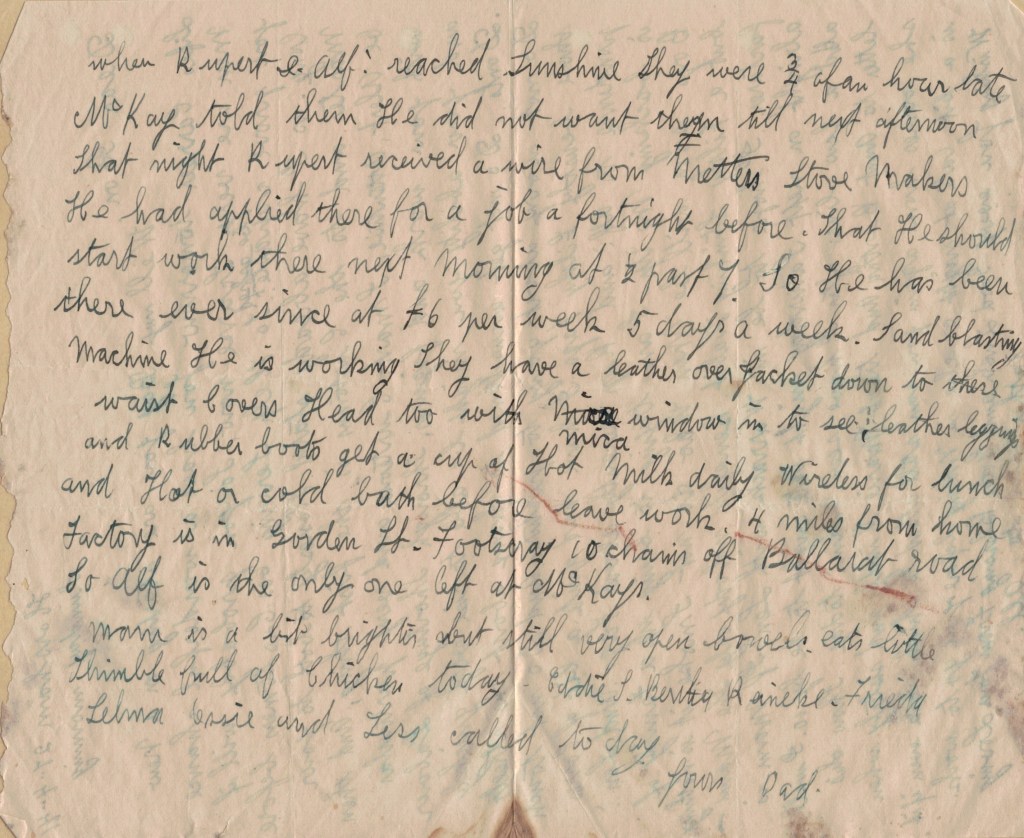 when Rupert & Alf: reached Sunshine They were 3/4 of an hour late
McKay told them He did not want them till next afternoon
That night Rupert received a wire from Metters Stove Makers
He had applied there for a job a fortnight before. That He should
start work there next Morning at 1/2 past 7. So He has been
there ever since at £6 per week 5 days a week. Sand blasting
Machine He is working They have a leather over Jacket down to there
waist Covers Head too with mica window in to see; leather leggings
and Rubber boots get a cup of Hot Milk daily Wireless for lunch
and Hot or cold bath before leave work. 4 miles from home
Factory is in Gorden St. Footscray 10 chains off Ballarat road
So Alf is the only one left at McKays.
Mam is a bit brighter but still very open bowels. eats little
Thimble full of Chicken today - Eddie S. Bertha Reineke. Frieda
Selma Essie and Less called to day
Yours Dad.